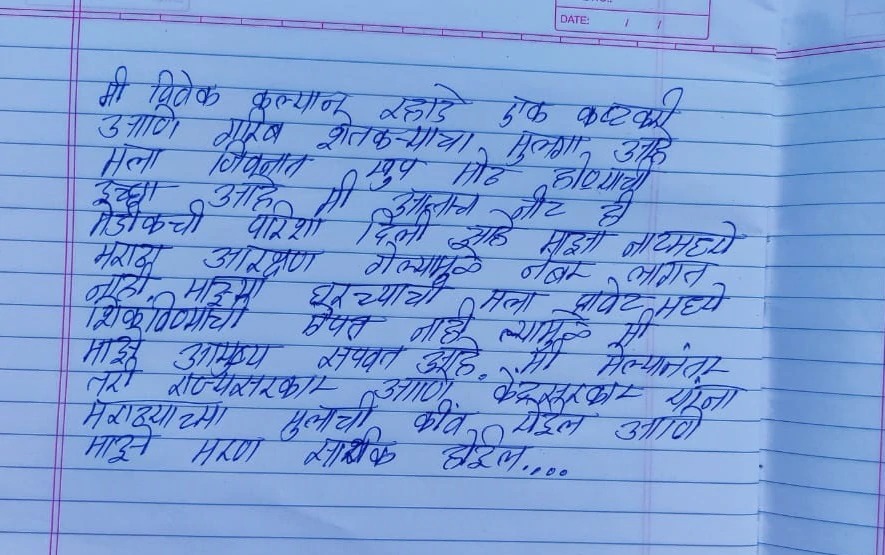 DATE: / /
मी विवेक कल्यान रहाडे एक कष्टकरी
आणि गरिब शेतकऱ्याचा मुलगा आहे
मला जिवनात खुप मोठ होण्याची
इच्छा आहे मी आत्ताच नीट ही
मेडीकची परिक्षा दिली आहे माझा नीटमध्ये
मराठा आरक्षण गेल्यामुळे नंबर लागत
नाही. माझ्या घरच्याची मला प्रायवेट मध्ये
शिकविण्याची ऐपत नाही त्यामुळे मी
माझे आयुष्य संपवत आहे. मी मेल्यानंतर
तरी राज्यसरकार आणि केंद्रसरकार यांना
मराठ्याच्या मुलाची कीव येईल आणि
माझे मरण सार्थक होईल....